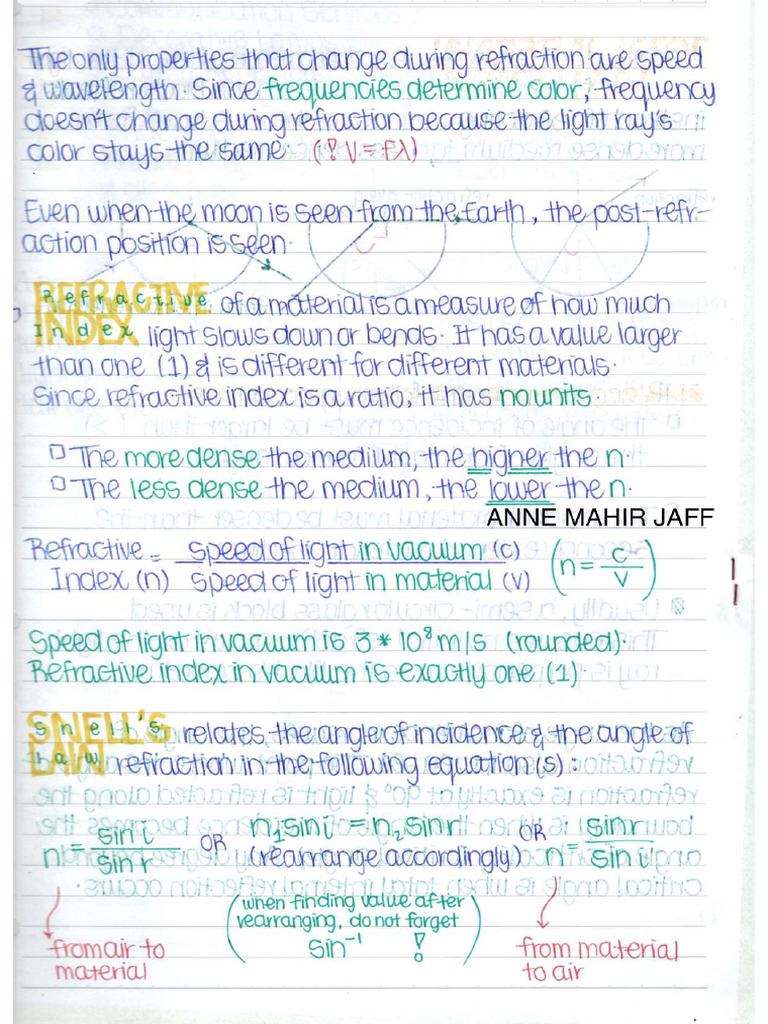 The only properties that change during refraction are speed
& wavelength. Since frequencies determine color, frequency
doesn't change during refraction because the light ray's
color stays the same. (! V = fλ)
Even when the moon is seen from the Earth, the post-refr-
action position is seen.
REFRACTIVE Refractive of a material is a measure of how much
INDEX Index light slows down or bends. It has a value larger
than one (1) & is different for different materials.
Since refractive index is a ratio, it has no units.
The more dense the medium, the higher the n.
The less dense the medium, the lower the n.
ANNE MAHIR JAFF
Refractive = speed of light in vacuum (c) (n = c
Index (n) speed of light in material (v) v)
Speed of light in vacuum is 3 * 10⁸ m/s (rounded).
Refractive index in vacuum is exactly one (1).
SNELL'S Snell's relates the angle of incidence & the angle of
LAW Law refraction in the following equation(s):
n = sin i / sin r OR n₁sin i = n₂sin r OR n = sin r / sin i
(rearrange accordingly)
(when finding value after
rearranging, do not forget
sin⁻¹ !)
from air to
material
from material
to air